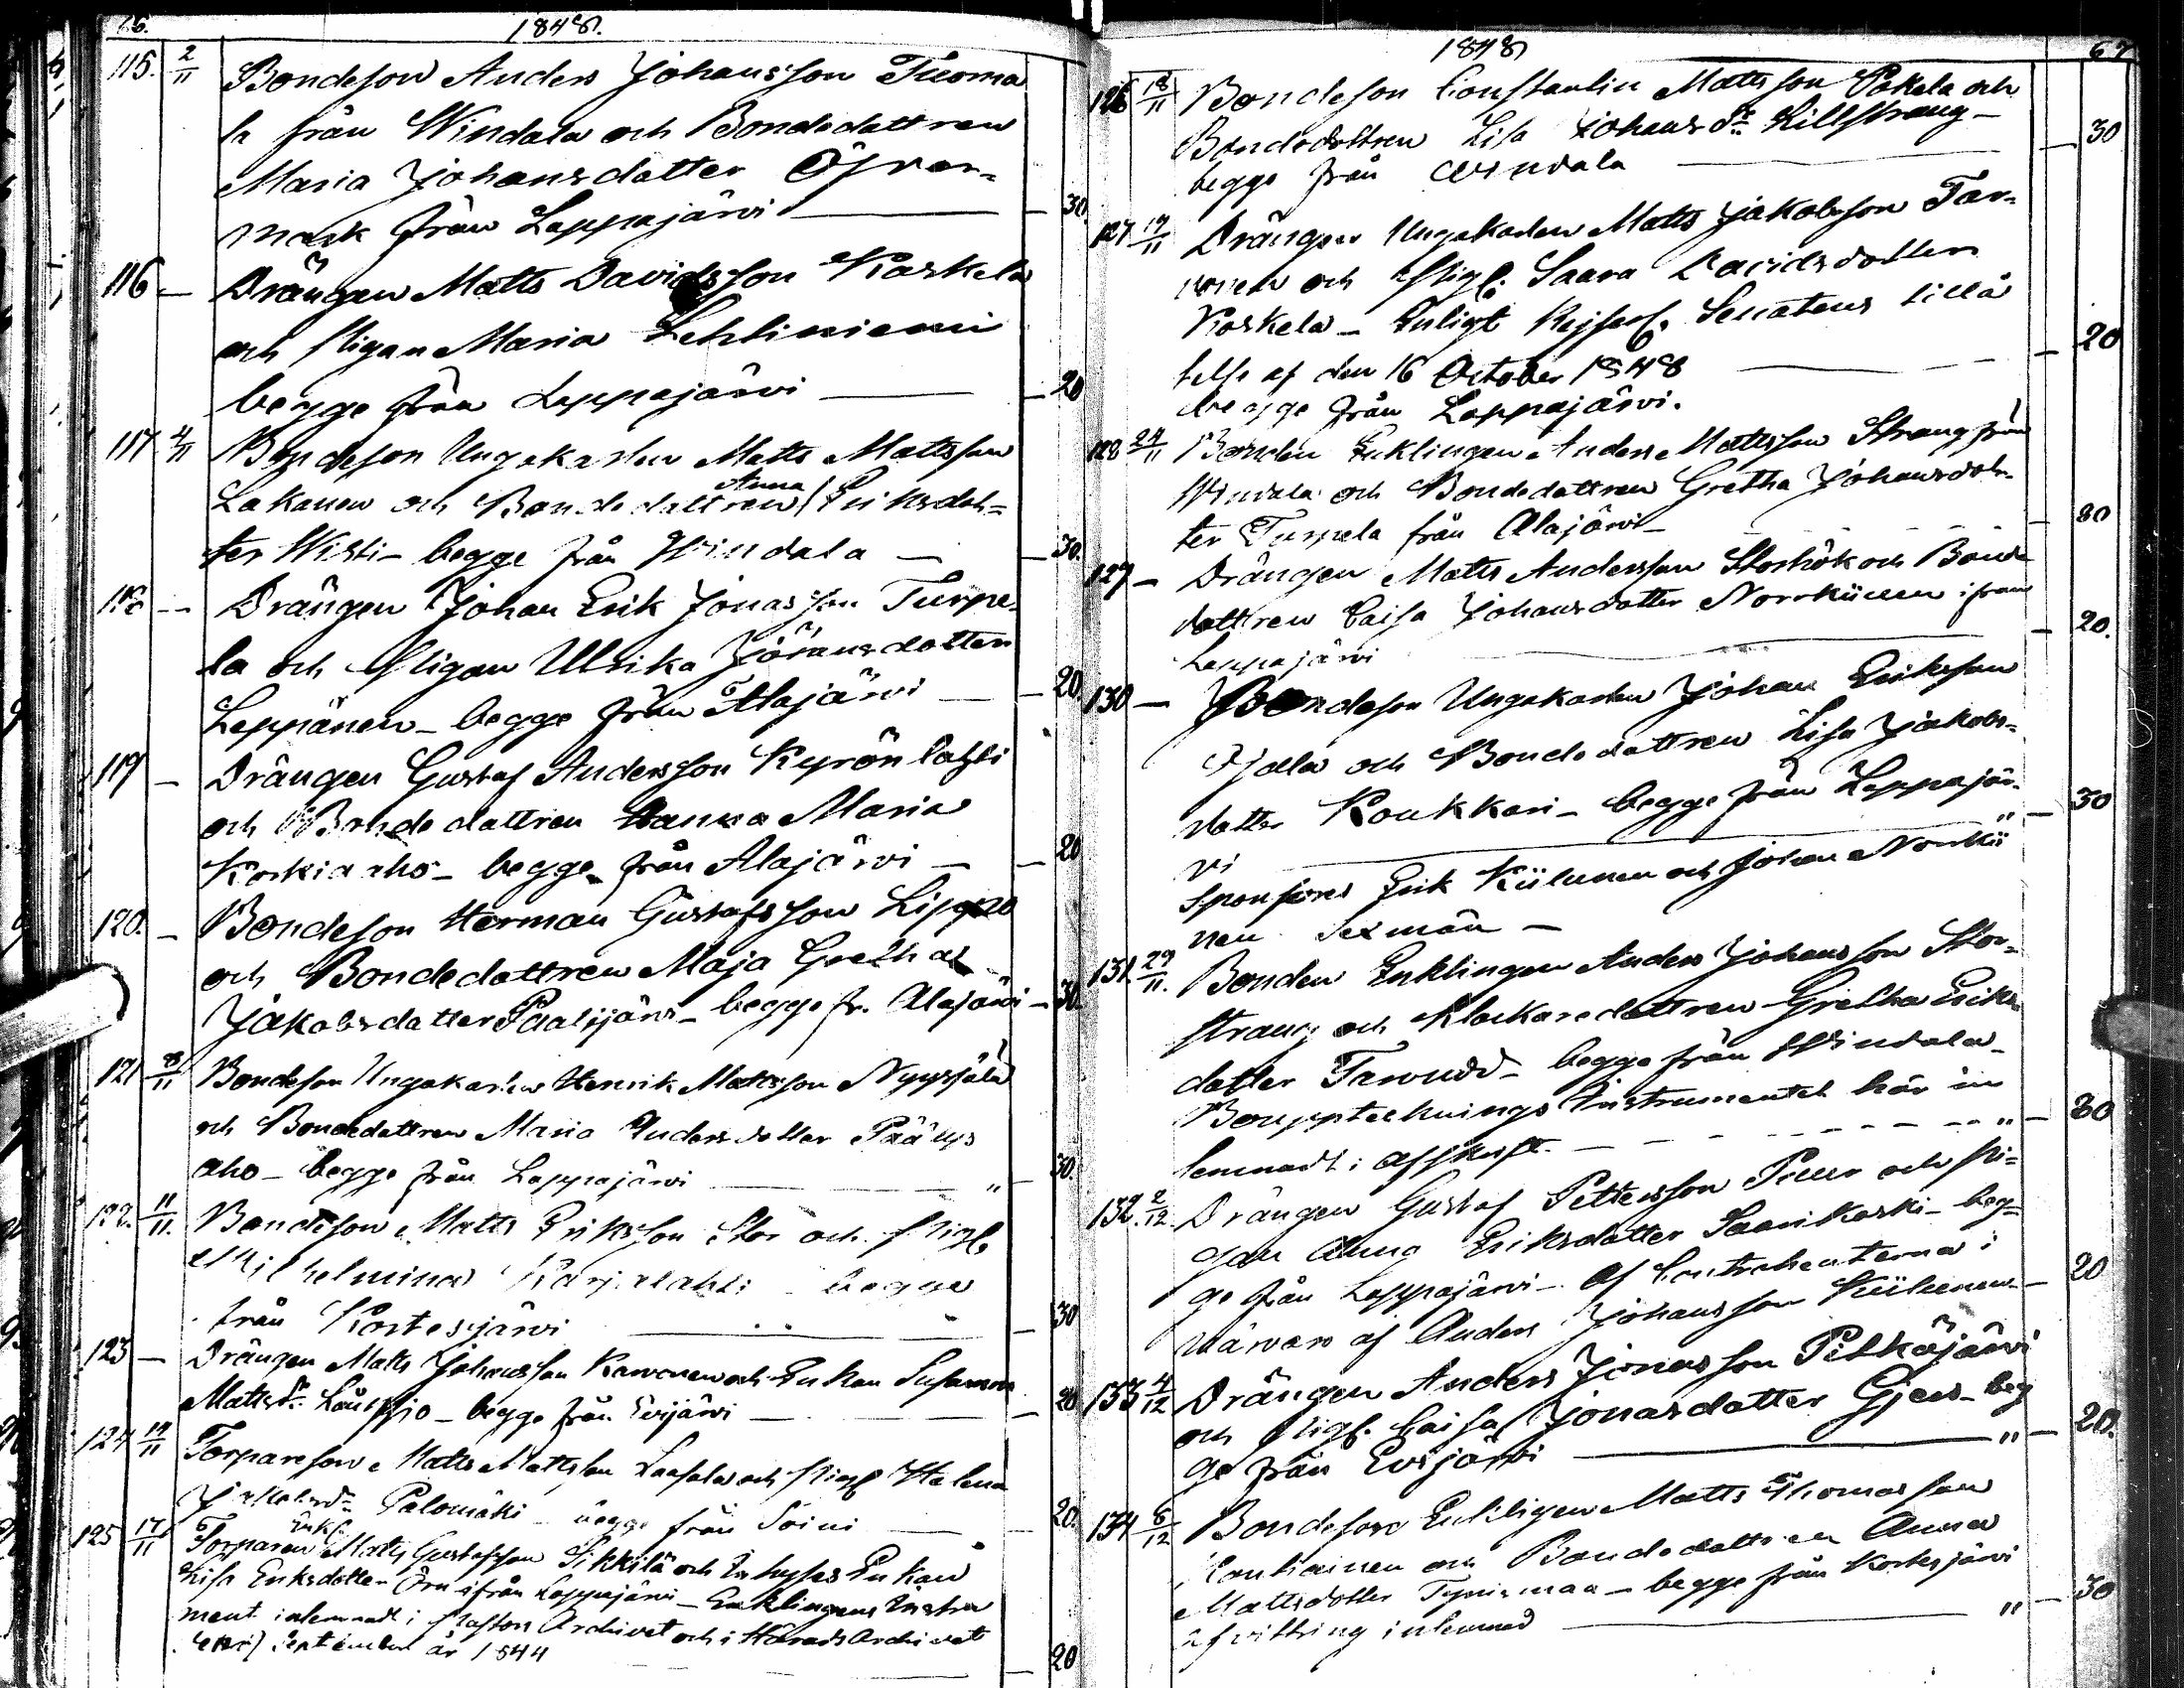 66.
1848.
115. 2/11 Bondeson Anders Johansson Tuoma
la från Windala och Bondedattren
Maria Johansdatter Öfver=
mark från Lappajärvi — 30.
116 — Drängen Matts Davidsson Koskela
och Pigan Maria Lehtiniemi
begge från Lappajärvi — 20
117 4/11 Bondeson Ungakarlen Matts Mattsson
Lakanen och Bondedattren Anna Eriksdat=
ter Wisti – begge från Windala — 30.
118 — Drängen Johan Erik Jonasson Turpe=
la och Pigan Ulrika Jöransdatter
Leppänen – begge från Alajärvi — 20.
119 — Drängen Gustaf Andersson Kyrönlahti
och Bondedattren Hanna Maria
Korkiaaho – begge från Alajärvi — 20
120. — Bondeson Herman Gustafsson Lippo
och Bondedattren Maja Gretha
Jakobsdatter Paalijärvi – begge fr. Alajärvi — 30.
121 8/11 Bondeson Ungakarlen Henrik Mattsson Nyysjälä
och Bondedattren Maria Andersdotter Päällys
aho – begge från Lappajärvi — " — 30.
122. 11/11. Bondeson Matts Eriksson Stor och Pig.
Wilhelmina Karjalahti begge
från Kortesjärvi — 30
123 — Drängen Matts Johansson Karvonen och Enkan Susanna
Mattsdr — begge från Evijärvi — 20
124 14/11 Torpareson Matts Mattsson Laasala och Pig Helena
Jakobsdr Palomäki – begge från Soini — 20.
125 17/11 Torparen Enkl. Matts Gustafsson Sikkilä och Inhyses Enkan
Lisa Eriksdotter ifrån Lappajärvi – Enklingens Instru
ment inlemnadt i Pastors Archivet och i Härads Archivet
September år 1844 — 20
1848
67
126 18/11 Bondeson Constantin Mattsson Pokela och
Bondedottren Lisa Johansdr Killstrang –
begge från Windala — 30
127 19/11 Drängen Ungakarlen Matts Jakobsson Tar=
vonen och Pig. Saara Davidsdotter
Koskela – Enligt Kejserl. Senatens tillå
telse af den 16 October 1848 — 20
begge från Lappajärvi.
128 24/11 Bonden Enklingen Anders Mattsson Strang från
Windala och Bondedattren Gretha Johansdot=
ter Turpela från Alajärvi – 30
129 — Drängen Matts Andersson Storhök och Bonde
dattren Caisa Johansdotter Norrkiinen ifrån
Lappajärvi — 20.
130 — Bondeson Ungakarlen Johan Eriksson
och Bondedattren Lisa Jakobs=
datter Koukkari – begge från Lappajär=
vi — " — 30
Sponsores Erik Kiilunen och Johan Norrkii
nen Sexmän –
131. 29/11. Bonden Enklingen Anders Johansson Stor=
strang och Klockaredattren Gretha Eriks
datter Farnudd – begge från Windala –
Bouppteknings Instrumentet här in
lemnadt i afskrift. — " — 30
132. 2/12 Drängen Gustaf Pettersson Puur och Pi=
gan Anna Eriksdatter Saarikoski – beg=
ge från Lappajärvi – af Contrahenterna i
närvaro af Anders Johansson Kiilunen. — 20
133 4/12 Drängen Anders Jonasson Pitkäjärvi
och Pig. Caisa Jonasdatter Gjers – beg
ge från Evijärvi — " — 20.
134 6/12 Bondeson Enkligen Matts Thomasson
Kontiainen och Bondedattren Anna
Mattsdotter Tynismaa – begge från Kortesjärvi
afvittring inlemnad — " — 30